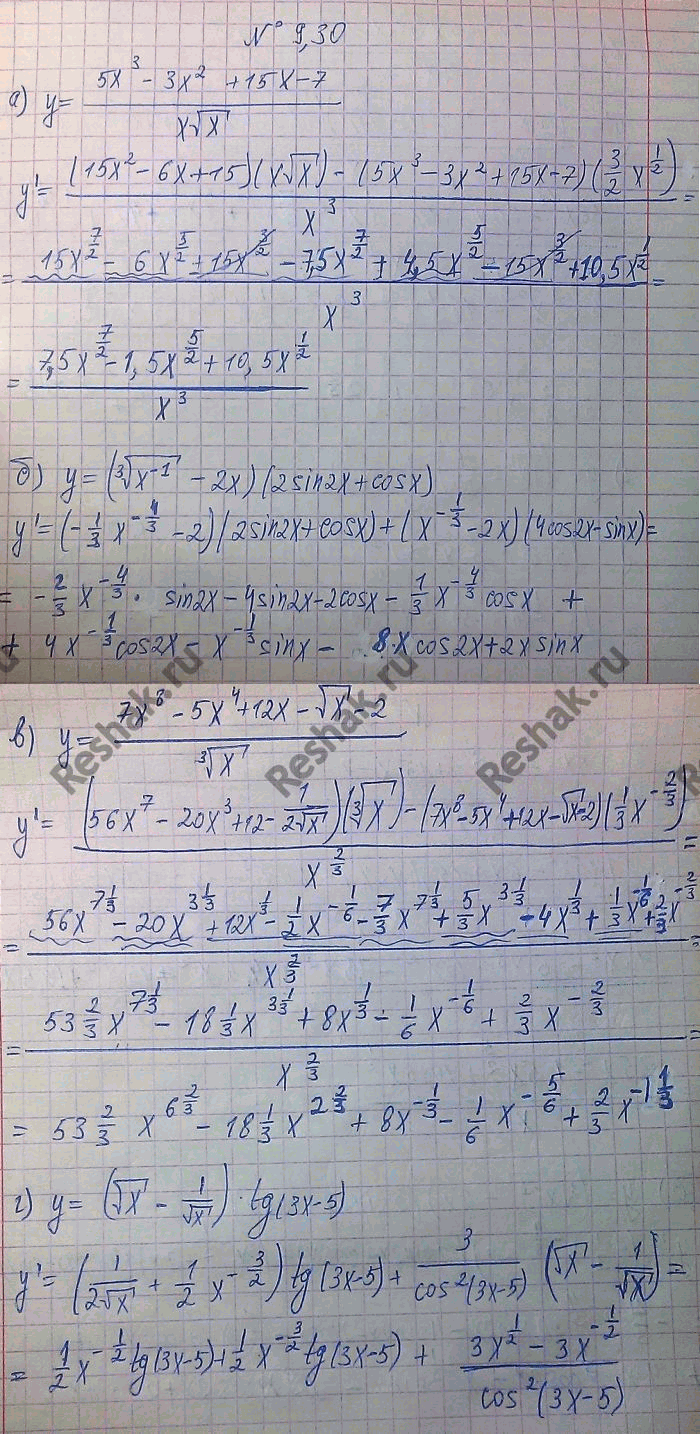 № 9,30
а) y = (5x³ - 3x² + 15x - 7) / (x√x)
y' = ((15x² - 6x + 15)(x√x) - (5x³ - 3x² + 15x - 7)(3/2 x^(1/2))) / x³ =
= (15x^(7/2) - 6x^(5/2) + 15x^(3/2) - 7,5x^(7/2) + 4,5x^(5/2) - 15x^(3/2) + 10,5x^(1/2)) / x³ =
= (7,5x^(7/2) - 1,5x^(5/2) + 10,5x^(1/2)) / x³
б) y = (∛(x^(-1)) - 2x)(2sin2x + cosx)
y' = (-1/3 x^(-4/3) - 2)(2sin2x + cosx) + (x^(-1/3) - 2x)(4cos2x - sinx) =
= -2/3 x^(-4/3) · sin2x - 4sin2x - 2cosx - 1/3 x^(-4/3) cosx +
+ 4x^(-1/3) cos2x - x^(-1/3) sinx - 8·x cos2x + 2x sinx
Reshak.ru Reshak.ru Reshak.ru
в) y = (7x⁸ - 5x⁴ + 12x - √x - 2) / ∛x
y' = ((56x⁷ - 20x³ + 12 - 1/(2√x))(∛x) - (7x⁸ - 5x⁴ + 12x - √x - 2)(1/3 x^(-2/3))) / x^(2/3) =
= (56x^(7 1/3) - 20x^(3 1/3) + 12x^(1/3) - 1/2 x^(-1/6) - 7/3 x^(7 1/3) + 5/3 x^(3 1/3) - 4x^(1/3) + 1/3 x^(-1/6) + 2/3 x^(-2/3)) / x^(2/3) =
= (53 2/3 x^(7 1/3) - 18 1/3 x^(3 1/3) + 8x^(1/3) - 1/6 x^(-1/6) + 2/3 x^(-2/3)) / x^(2/3) =
= 53 2/3 x^(6 2/3) - 18 1/3 x^(2 2/3) + 8x^(-1/3) - 1/6 x^(-5/6) + 2/3 x^(-1 1/3)
г) y = (√x - 1/√x) · tg(3x-5)
y' = (1/(2√x) + 1/2 x^(-3/2)) tg(3x-5) + 3/cos²(3x-5) (√x - 1/√x) =
= 1/2 x^(-1/2) tg(3x-5) + 1/2 x^(-3/2) tg(3x-5) + (3x^(1/2) - 3x^(-1/2)) / cos²(3x-5)